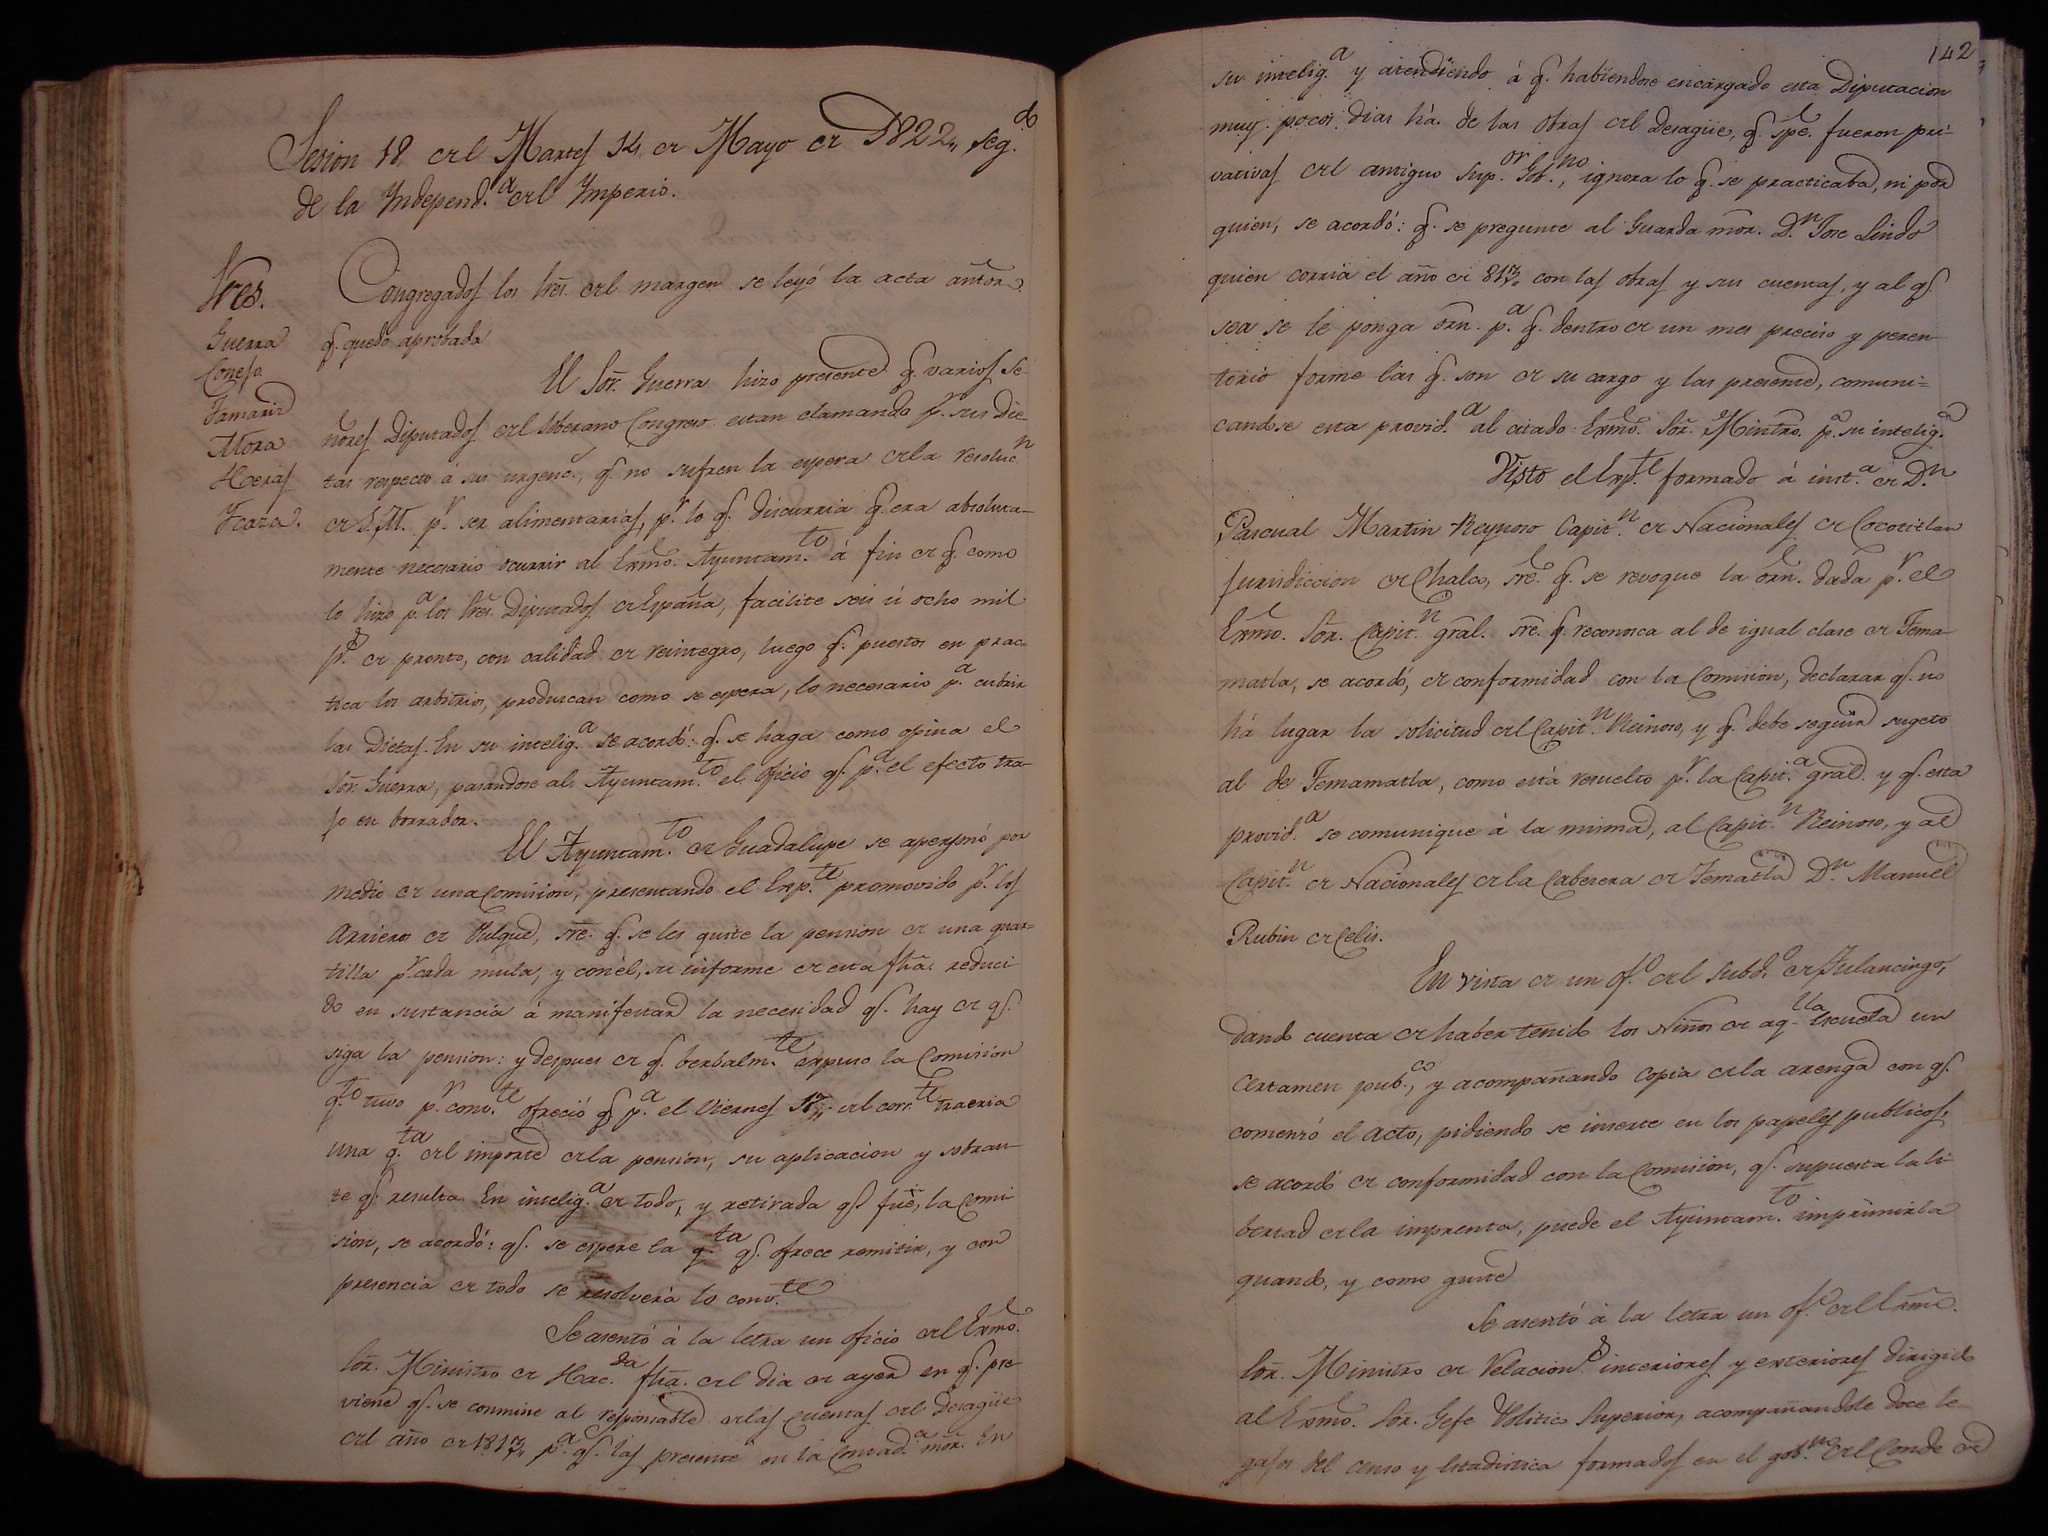 Sesion 18 del Martes 14 de Mayo de 1822,, seg.do
de la Independ.a del Ymperio.
Sres.
Guerra
Conejo.
Tamariz
Mora
Heras
Ycaza.
Congregados los Sres. del margen se leyó la acta anteor.
q. quedó aprobada
El Sor. Guerra hizo presente q. varios Se-
ñores Diputados del Soberano Congreso estan clamando p.r sus Die-
tas respecto á sus urgenc.s, q. no sufren la espera de la resoluc.n
de S.M. p.r ser alimentarias, p.r lo q. discurria q. era absoluta-
mente necesario ocurrir al Exmo. Ayuntam.to á fin de q. como
lo hizo p.a los Sres. Diputados de España, facilite seis ú ocho mil
p.s de pronto, con calidad de reintegro, luego q. puestos en prac-
tica los arbitrios, produscan como se espera, lo necesario p.a cubrir
las Dietas. En su intelig.a se acordó: q. se haga como opina el
Sor. Guerra, pasandose al Ayuntam.to el oficio q. p.a el efecto tra-
jo en borrador.
El Ayuntam.to de Guadalupe se apersonó por
medio de una Comision, presentando el Exp.te promovido p.r los
Arrieros de Pulque, sre. q. se les quite la pension de una quar-
tilla p.r cada mula, y con él, su informe de esta fha. reduci
do en sustancia á manifestar la necesidad q. hay de q.
siga la pension: y despues de q. berbalm.te expuso la Comision
q.to tuvo p.r conv.te ofreció q. p.a el Viernes 17,, del corr.te traeria
una q.ta del importe de la pension, su aplicacion y sobran-
te q. resulta. En intelig.a de todo, y retirada q. fué, la Comi
sion, se acordó: q. se espere la q.ta q. ofrece remitir, y con
presencia de todo se resolverá lo conv.te
Se asentó á la letra un oficio del Exmo.
Sor. Ministro de Hac.da fha. del dia de ayer en q. pre-
viene q. se conmine al responsable de las cuentas del Desagüe
del año de 1813,, p.a q. las presente en la Contad.a mor. En
142
su intelig.a y atendiendo á q. habiendose encargado esta Diputacion
muy pocos dias há de las obras del desagüe, q. spe. fueron pri-
vativas del antiguo Sup.or Gob.no, ignora lo q. se practicaba, ni por
quien, se acordó: q. se pregunte al Guarda mor. D.n Jose Lindo
quien corria el año de 813,, con las obras y sus cuentas, y al q.
sea se le ponga orn. p.a q. dentro de un mes preciso y peren-
torio forme las q. son de su cargo y las presente, comuni=
candose esta provid.a al citado Exmo. Sor. Mintro. p.a su intelig.a
Visto el Exp.te formado á inst.a de D.n
Pascual Martin Reynoso Capit.n de Nacionales de Cocotitlan
Jurisdiccion de Chalco, sre. q. se revoque la orn. dada p.r el
Exmo. Sor. Capit.n gral. sre. q. reconosca al de igual clase de Tema-
matla, se acordó, de conformidad con la Comision, declarar q. no
há lugar la solicitud del Capit.n Reinoso, y q. debe seguir sugeto
al de Temamatla, como está resuelto p.r la Capit.a gral. y q. esta
provid.a se comunique á la misma, al Capit.n Reinoso, y al
Capit.n de Nacionales de la Cabesera de Tematla D.n Manuel
Rubin de Celis.
En vista de un of.o del Subd.o de Tulancingo,
dando cuenta de haber tenido los Niños de aq.lla Escuela un
certamen pub.co, y acompañando copia de la arenga con q.
comenzó el acto, pidiendo se inserte en los papeles publicos,
se acordó de conformidad con la Comision, q. supuesta la li-
bertad de la imprenta, puede el Ayuntam.to imprimirla
quando, y como guste
Se asentó á la letra un of.o del Exmo.
Sor. Ministro de Relacion.s interiores y exteriores dirigido
al Exmo. Sor. Gefe Politico Superior, acompañandole doce le-
gajos del censo y Estadistica formados en el gob.no del Conde de